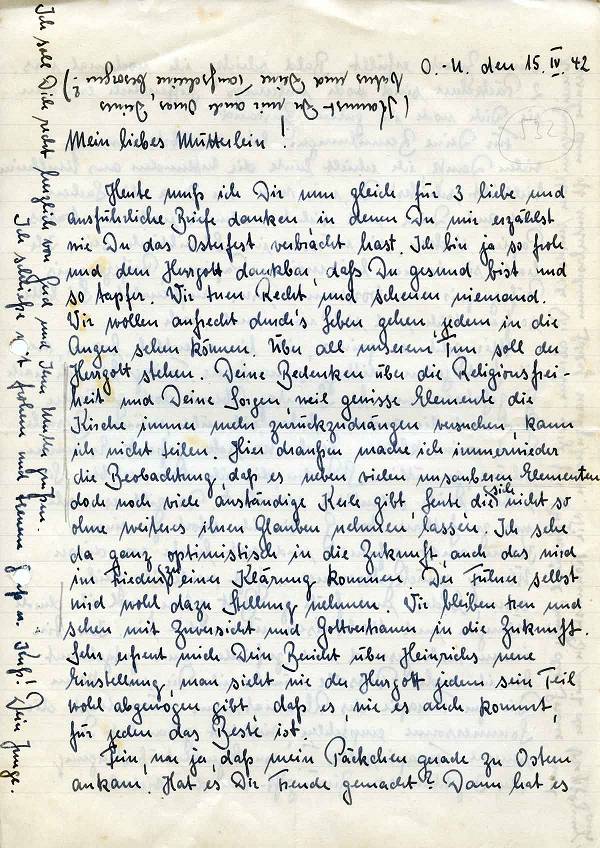 O.-U. den 15. IV. 42
(Kannst Du mir auch Omas, Deines
Vaters und Deine Taufscheine besorgen?)
532
Mein liebes Mütterlein!
Heute muß ich Dir nun gleich für 3 liebe und
ausführliche Briefe danken, in denen Du mir erzählst
wie Du das Osterfest verbracht hast. Ich bin ja so froh
und dem Herrgott dankbar, daß Du gesund bist und
so tapfer. Wir tuen Recht und scheuen niemand.
Wir wollen aufrecht durch's Leben gehen, jedem in die
Augen sehen können. Über all unserem Tun soll der
Herrgott stehen. Deine Bedenken über die Religionsfrei-
heit und Deine Sorgen, weil gewisse Elemente die
Kirche immer mehr zurückzudrängen versuchen, kann
ich nicht teilen. Hier draußen mache ich immerwieder
die Beobachtung, daß es neben vielen unsauberen Elementen
doch noch viele anständige Kerle gibt, Leute die sich nicht so
ohne weiteres ihnen Glauben nehmen lassen. Ich sehe
da ganz optimistisch in die Zukunft, auch das wird
im Frieden zu einer Klärung kommen. Der Führer selbst
wird wohl dazu Stellung nehmen. Wir bleiben treu und
sehen mit Zuversicht und Gottvertrauen in die Zukunft.
Sehr erfreut mich Dein Bericht über Heinrichs neue
Einstellung, man sieht wie der Herrgott jedem sein Teil
wohl abgewogen gibt, daß es, wie es auch kommt,
für jeden das Beste ist.
Fein, war ja, daß mein Päckchen gerade zu Ostern
ankam. Hat es Dir Freude gemacht? Dann hat es
Ich soll Dich recht herzlich von und Mutter grüßen.
Ich schließe mit frohem und treuem Kuß! Dein Junge.